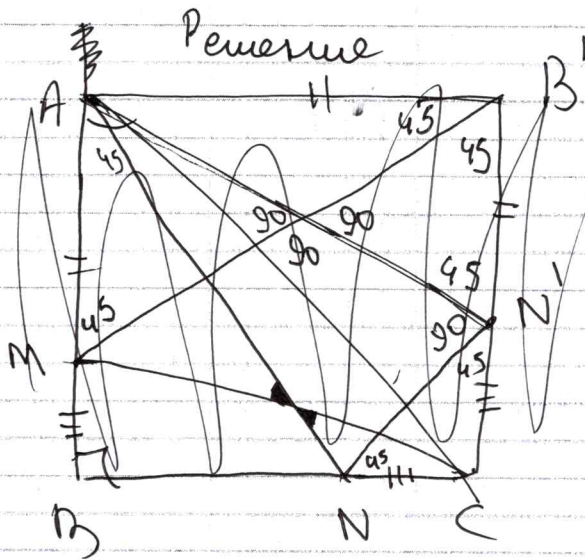 Решение
A 45 B'
45
45
90 90
90
45
N'
45 90
45
M
45
B N C